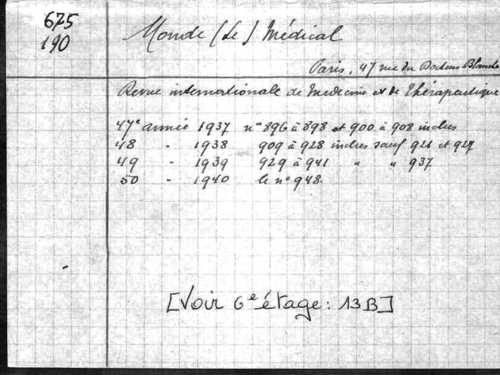 625
190
Monde (Le) Médical
Paris, 47 rue du Docteur Blanche
Revue internationale de Médecine et de Thérapeutique
47e année 1937 n° 896 à 898 et 900 à 908 inclus
48 - 1938 909 à 928 inclus sauf 921 et 927
49 - 1939 929 à 941 " " 937
50 - 1940 le n° 948.
[Voir 6e étage : 13B]